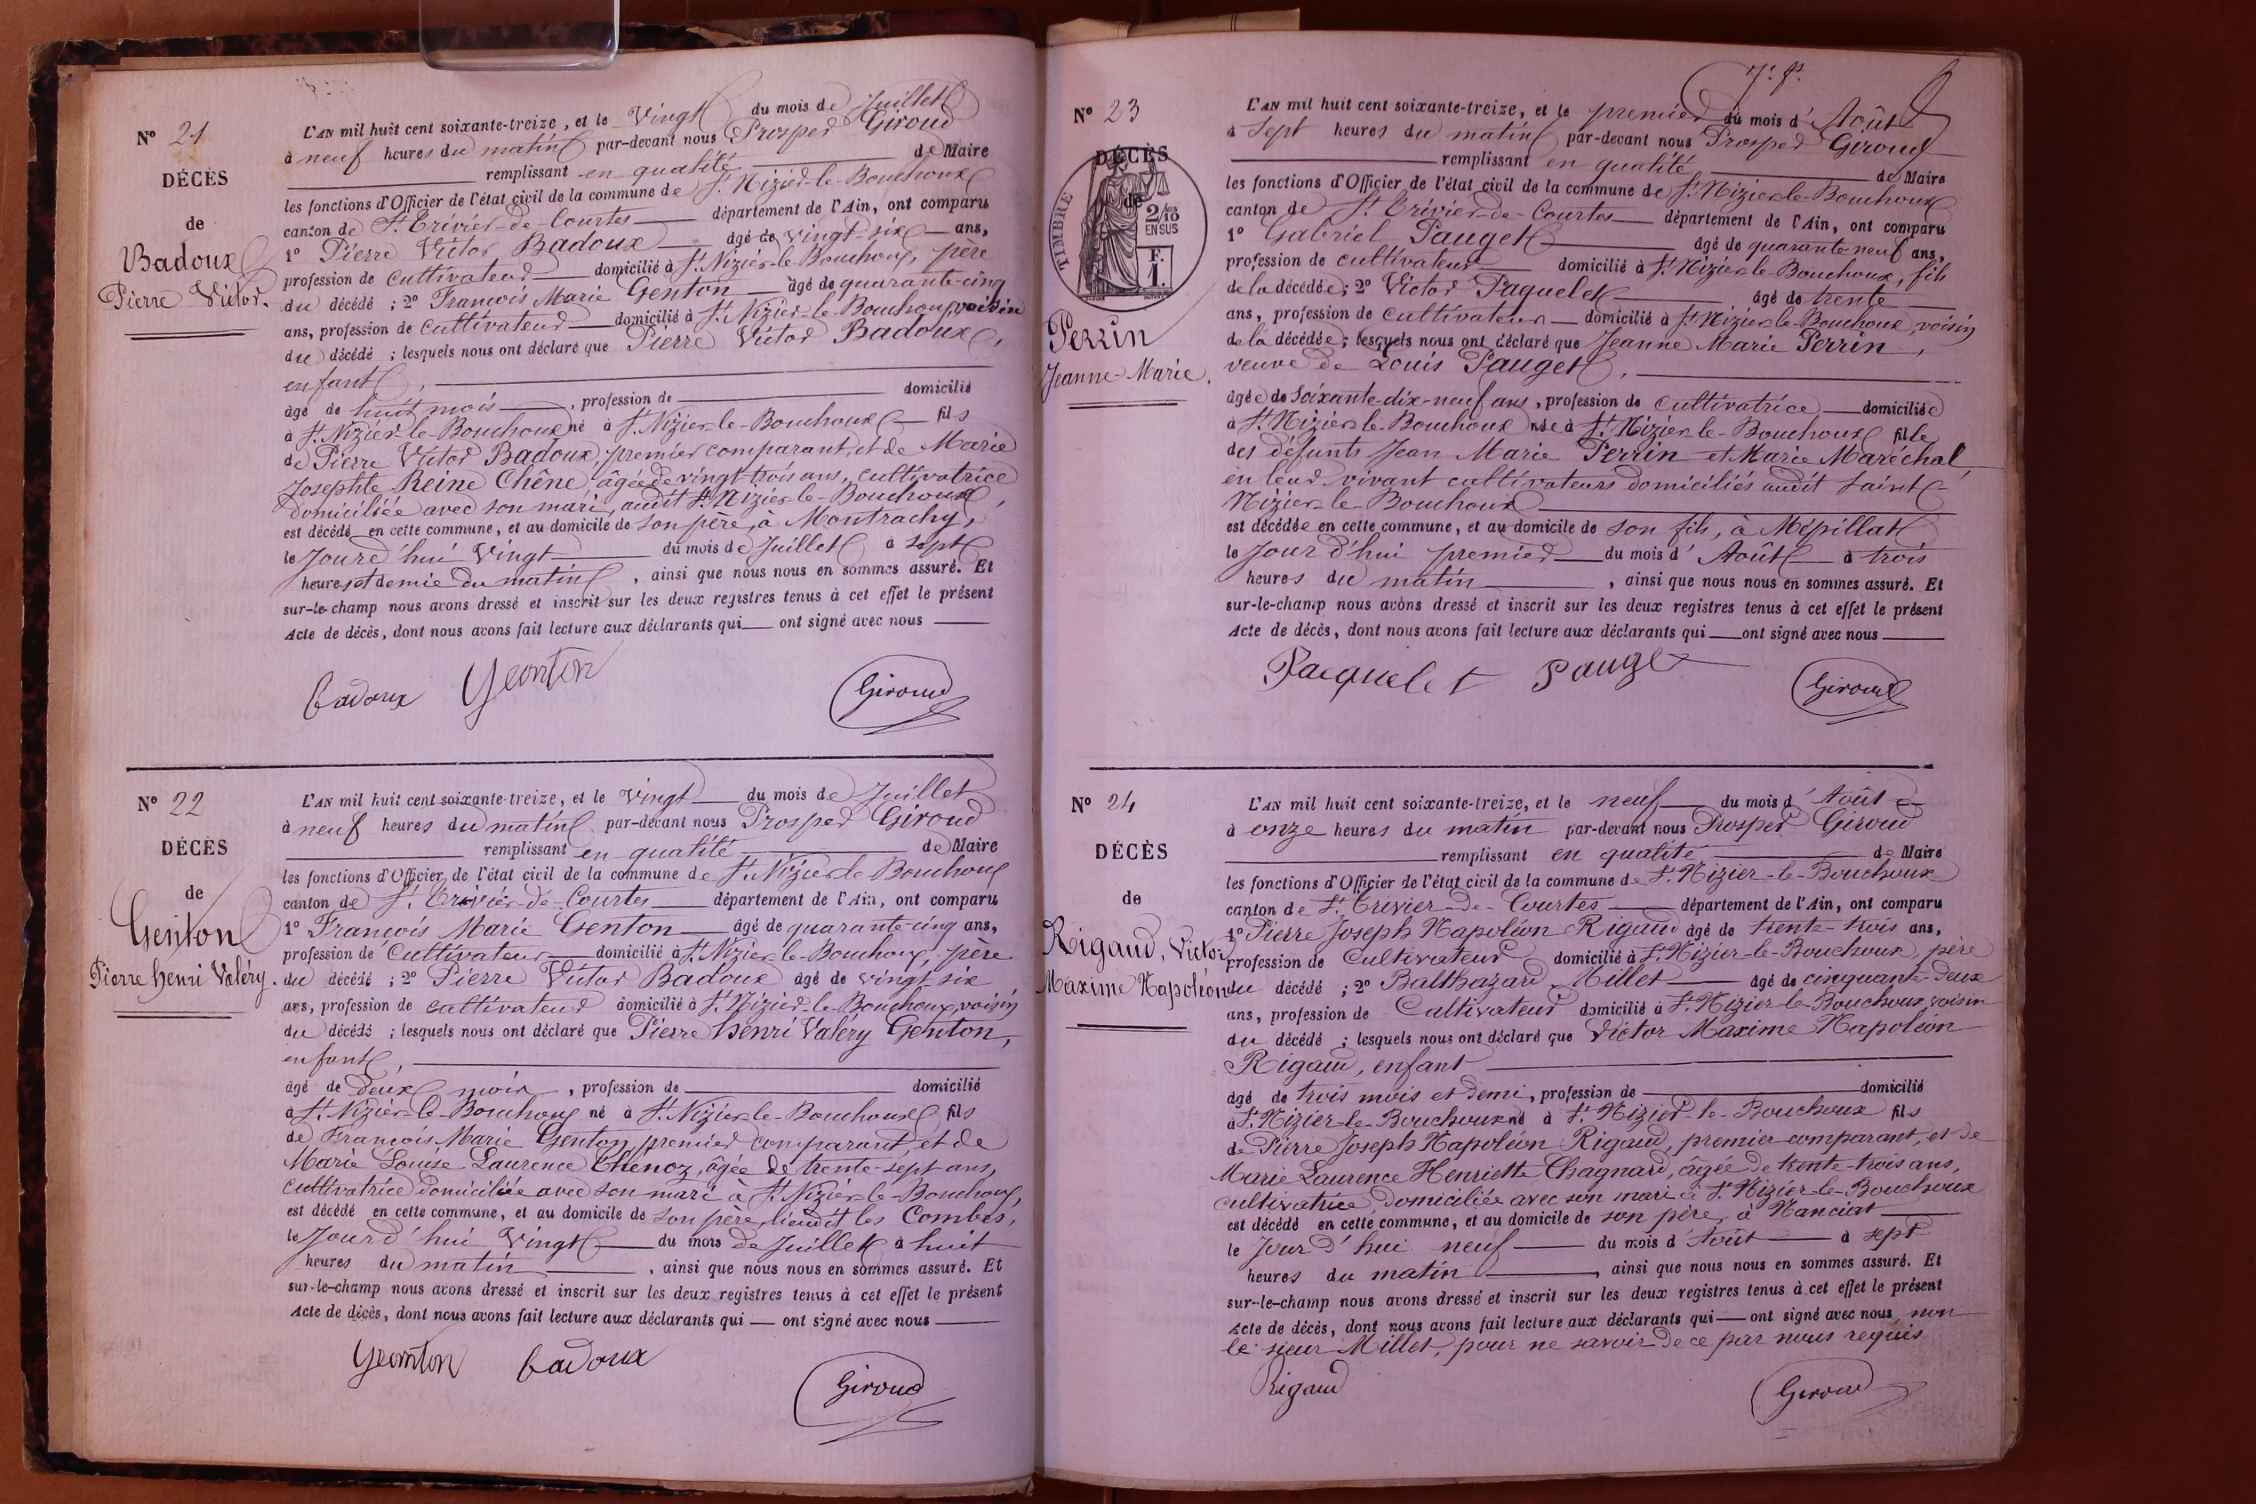 N° 21
DÉCÈS
de
Badoux
Pierre Victor.
L'AN mil huit cent soixante-treize, et le Vingt du mois de Juillet
à neuf heures du matin par-devant nous Prosper Giroud
remplissant en qualité de Maire
les fonctions d'Officier de l'état civil de la commune de St Nizier-le-Bouchoux
canton de St Trivier-de-Courtes département de l'Ain, ont comparu
1° Pierre Victor Badoux âgé de vingt-six ans,
profession de cultivateur domicilié à St Nizier-le-Bouchoux, père
du décédé ; 2° François Marie Genton âgé de quarante-cinq
ans, profession de cultivateur domicilié à St Nizier-le-Bouchoux, voisin
du décédé ; lesquels nous ont déclaré que Pierre Victor Badoux,
enfant,
âgé de huit mois, profession de domicilié
à St Nizier-le-Bouchoux né à St Nizier-le-Bouchoux fils
de Pierre Victor Badoux, premier comparant, et de Marie
Josephte Reine Chêne, âgée de vingt-trois ans, cultivatrice
domiciliée avec son mari, audit St Nizier-le-Bouchoux,
est décédé en cette commune, et au domicile de son père, à Montrachy,
le Jourd'hui Vingt du mois de Juillet à sept
heures et demie du matin, ainsi que nous nous en sommes assuré. Et
sur-le-champ nous avons dressé et inscrit sur les deux registres tenus à cet effet le présent
Acte de décès, dont nous avons fait lecture aux déclarants qui ont signé avec nous
Badoux Genton Giroud
N° 22
DÉCÈS
de
Genton
Pierre Henri Valéry.
L'AN mil huit cent soixante-treize, et le Vingt du mois de Juillet
à neuf heures du matin par-devant nous Prosper Giroud
remplissant en qualité de Maire
les fonctions d'Officier de l'état civil de la commune de St Nizier-le-Bouchoux
canton de St Trivier-de-Courtes département de l'Ain, ont comparu
1° François Marie Genton âgé de quarante-cinq ans,
profession de Cultivateur domicilié à St Nizier-le-Bouchoux, père
du décédé ; 2° Pierre Victor Badoux âgé de vingt-six
ans, profession de cultivateur domicilié à St Nizier-le-Bouchoux, voisin
du décédé ; lesquels nous ont déclaré que Pierre Henri Valéry Genton,
enfant,
âgé de deux mois, profession de domicilié
à St Nizier-le-Bouchoux né à St Nizier-le-Bouchoux fils
de François Marie Genton, premier comparant, et de
Marie Louise Laurence Chenoz, âgée de trente-sept ans,
cultivatrice domiciliée avec son mari à St Nizier-le-Bouchoux,
est décédé en cette commune, et au domicile de son père, lieudit les Combes,
le Jourd'hui Vingt du mois de Juillet à huit
heures du matin, ainsi que nous nous en sommes assuré. Et
sur-le-champ nous avons dressé et inscrit sur les deux registres tenus à cet effet le présent
Acte de décès, dont nous avons fait lecture aux déclarants qui ont signé avec nous
Genton Badoux Giroud
N° 23
DÉCÈS
de
TIMBRE
2/10
EN SUS
F.
1.
Perrin
Jeanne-Marie.
L'AN mil huit cent soixante-treize, et le premier du mois d'Août
à Sept heures du matin par-devant nous Prosper Giroud
remplissant en qualité de Maire
les fonctions d'Officier de l'état civil de la commune de St Nizier-le-Bouchoux
canton de St Trivier-de-Courtes département de l'Ain, ont comparu
1° Gabriel Pauget âgé de quarante-neuf ans,
profession de cultivateur domicilié à St Nizier-le-Bouchoux, fils
de la décédée ; 2° Victor Paquelet âgé de trente
ans, profession de cultivateur domicilié à St Nizier-le-Bouchoux, voisin
de la décédée ; lesquels nous ont déclaré que Jeanne Marie Perrin,
veuve de Louis Pauget,
âgée de Soixante-dix-neuf ans, profession de cultivatrice domiciliée
à St Nizier-le-Bouchoux née à St Nizier-le-Bouchoux fille
des défunts Jean Marie Perrin et Marie Maréchal,
en leur vivant cultivateurs domiciliés audit Saint-
Nizier-le-Bouchoux
est décédée en cette commune, et au domicile de son fils, à Mépillat
le Jour d'hui premier du mois d'Août à trois
heures du matin, ainsi que nous nous en sommes assuré. Et
sur-le-champ nous avons dressé et inscrit sur les deux registres tenus à cet effet le présent
Acte de décès, dont nous avons fait lecture aux déclarants qui ont signé avec nous
Pacquelet Pauget Giroud
N° 24
DÉCÈS
de
Rigaud, Victor
Maxime Napoléon
L'AN mil huit cent soixante-treize, et le neuf du mois d'Août
à onze heures du matin par-devant nous Prosper Giroud
remplissant en qualité de Maire
les fonctions d'Officier de l'état civil de la commune de St Nizier-le-Bouchoux
canton de St Trivier-de-Courtes département de l'Ain, ont comparu
1° Pierre Joseph Napoléon Rigaud âgé de trente-trois ans,
profession de Cultivateur domicilié à St Nizier-le-Bouchoux, père
du décédé ; 2° Balthazard Millet âgé de cinquante-deux
ans, profession de Cultivateur domicilié à St Nizier-le-Bouchoux, voisin
du décédé ; lesquels nous ont déclaré que Victor Maxime Napoléon
Rigaud, enfant
âgé de trois mois et demi, profession de domicilié
à St Nizier-le-Bouchoux né à St Nizier-le-Bouchoux fils
de Pierre Joseph Napoléon Rigaud, premier comparant, et de
Marie Laurence Henriette Chagnard, âgée de trente-trois ans,
cultivatrice, domiciliée avec son mari à St Nizier-le-Bouchoux
est décédé en cette commune, et au domicile de son père, à Nanciat
le Jour d'hui neuf du mois d'Août à sept
heures du matin, ainsi que nous nous en sommes assuré. Et
sur-le-champ nous avons dressé et inscrit sur les deux registres tenus à cet effet le présent
Acte de décès, dont nous avons fait lecture aux déclarants qui ont signé avec nous non
le sieur Millet, pour ne savoir de ce par nous requis
Rigaud Giroud